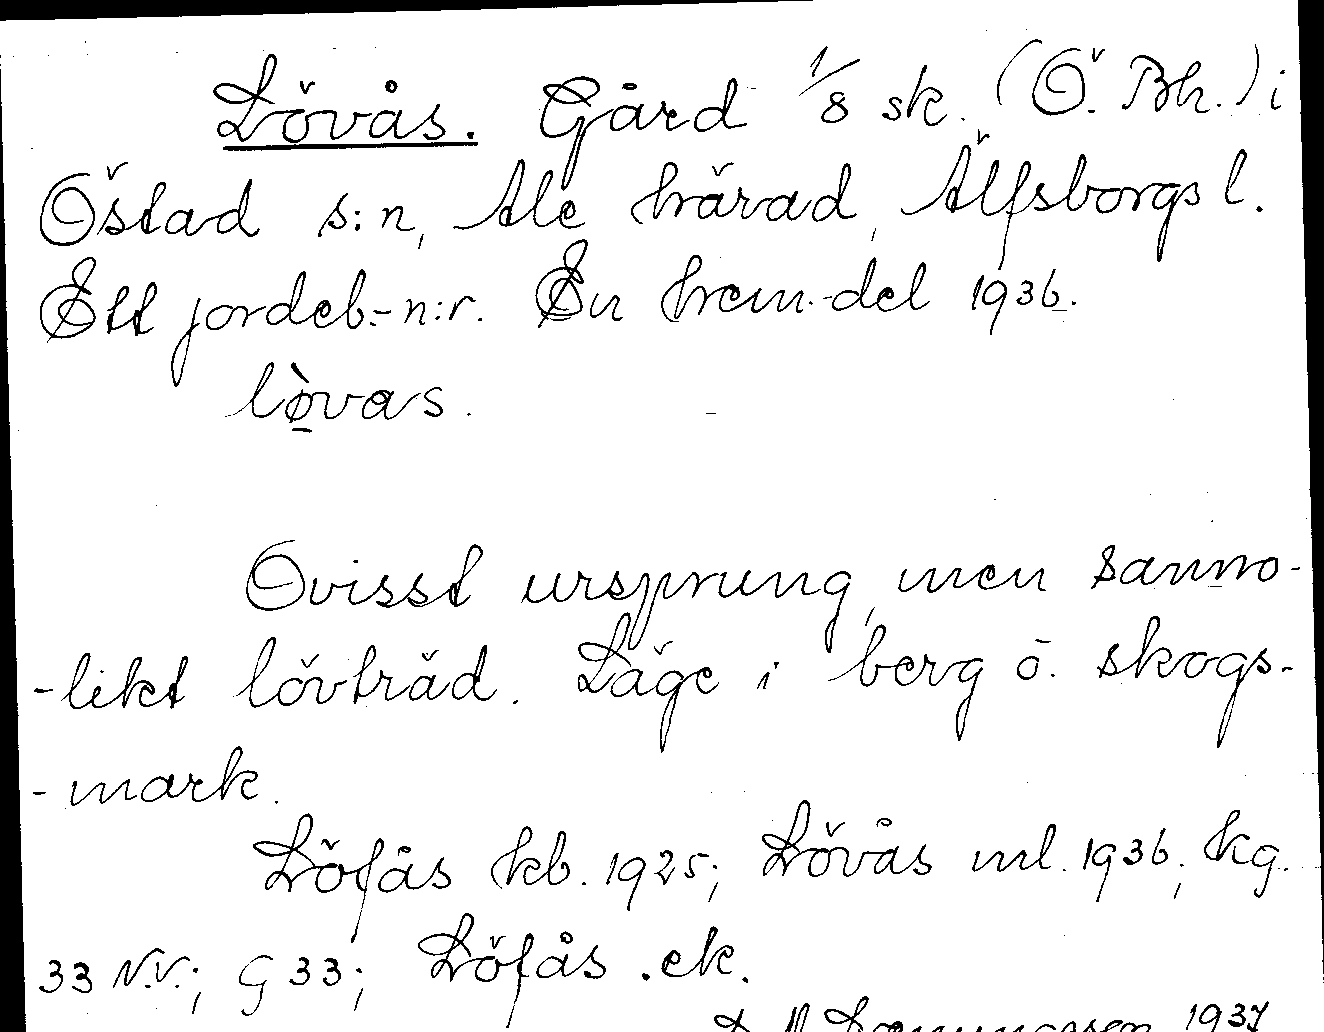 Lövås. Gård 1/8 sk. (Ö. Bh.) i
Östad s:n, Ale härad, Älfsborgs l.
Ett jordeb.-n:r. En hem.-del 1936.
lø̀vas.
Ovisst ursprung, men sanno-
-likt lövträd. Läge i berg o. skogs-
-mark.
Löfås kb. 1925; Lövås ml. 1936; kg.
33 N.V.; G 33; Löfås. ek.
1937